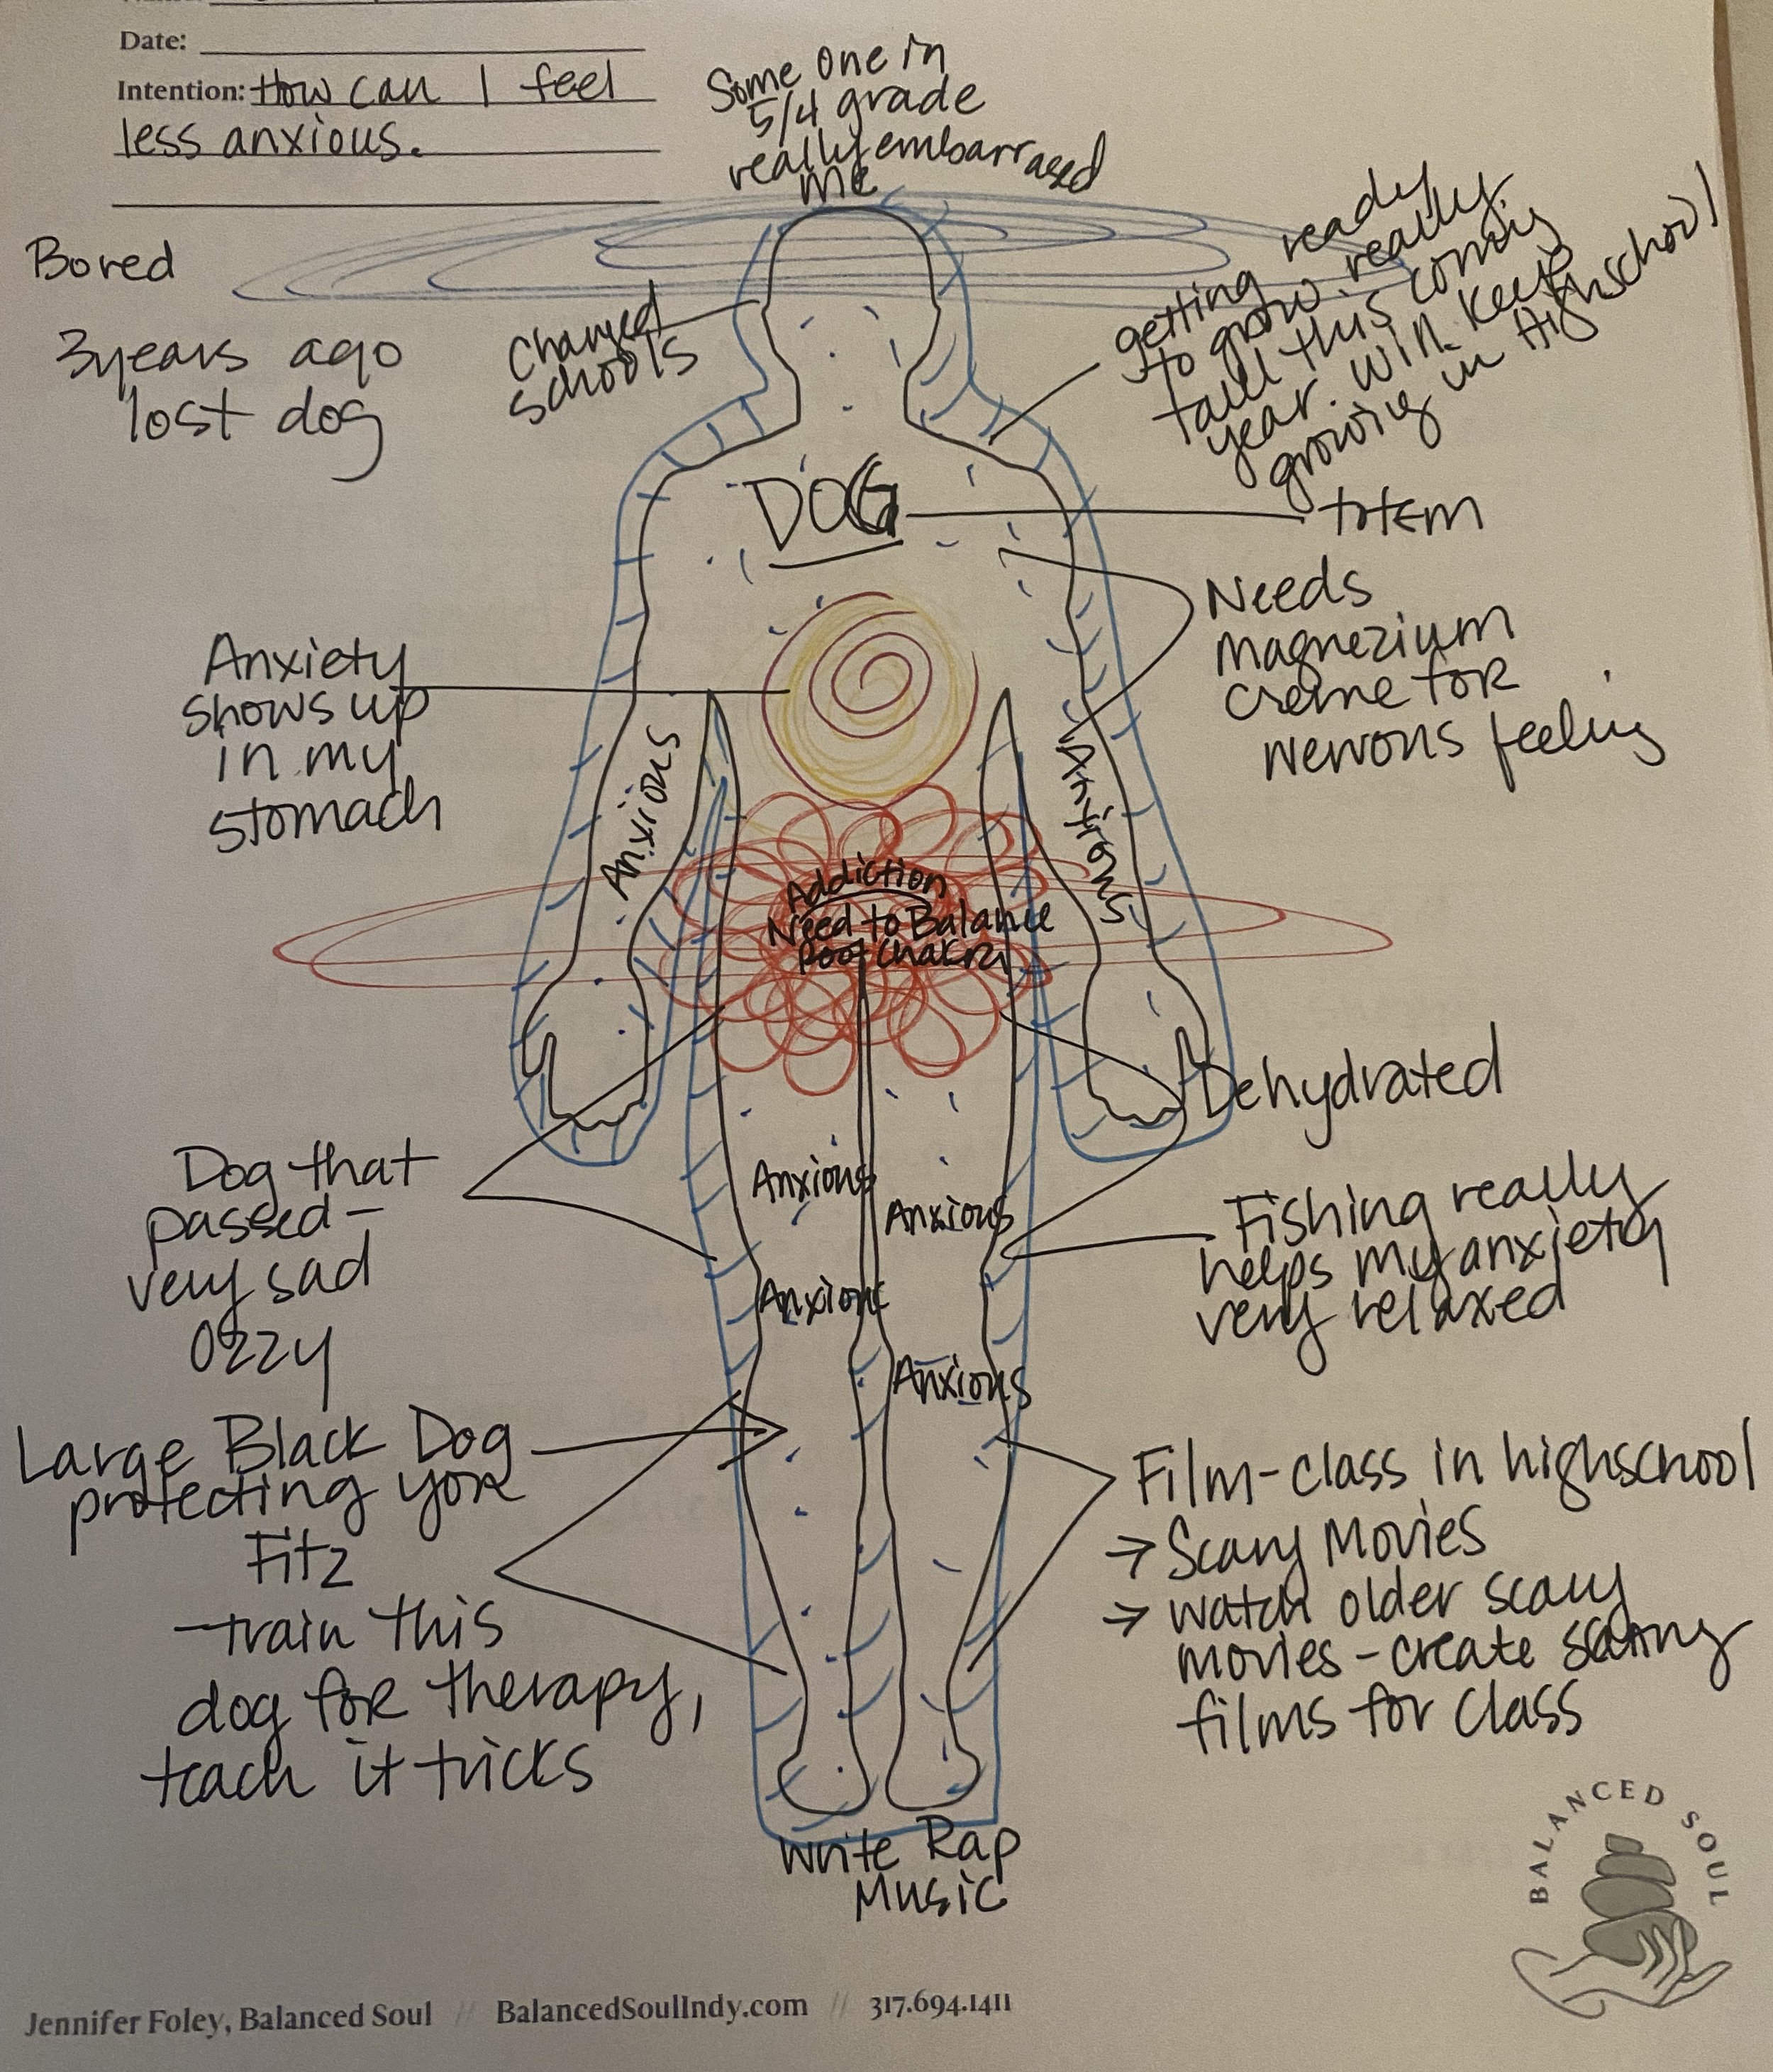 Date:
Intention: How can I feel
less anxious.
Some one in
5/4 grade
really embarrased
me
Bored
3years ago
lost dog
Changed
schools
getting ready
to grow really
tall this coming
year. Will keep
growing in Highschool
DOG
totem
Needs
magnezium
creme for
nervous feeling
Anxiety
shows up
in my
stomach
Anxious
Anxious
Addiction
Need to Balance
Root Chakra
Dehydrated
Dog that
passed-
very sad
Ozzy
Anxious
Anxious
Anxious
Anxious
Fishing really
helps my anxiety
very relaxed
Large Black Dog
protecting you
Fitz
-train this
dog for therapy,
teach it tricks
Film-class in highschool
→ Scary Movies
→ watch older scary
movies - create scary
films for class
Write Rap
Music
BALANCED SOUL
Jennifer Foley, Balanced Soul // BalancedSoulIndy.com // 317.694.1411